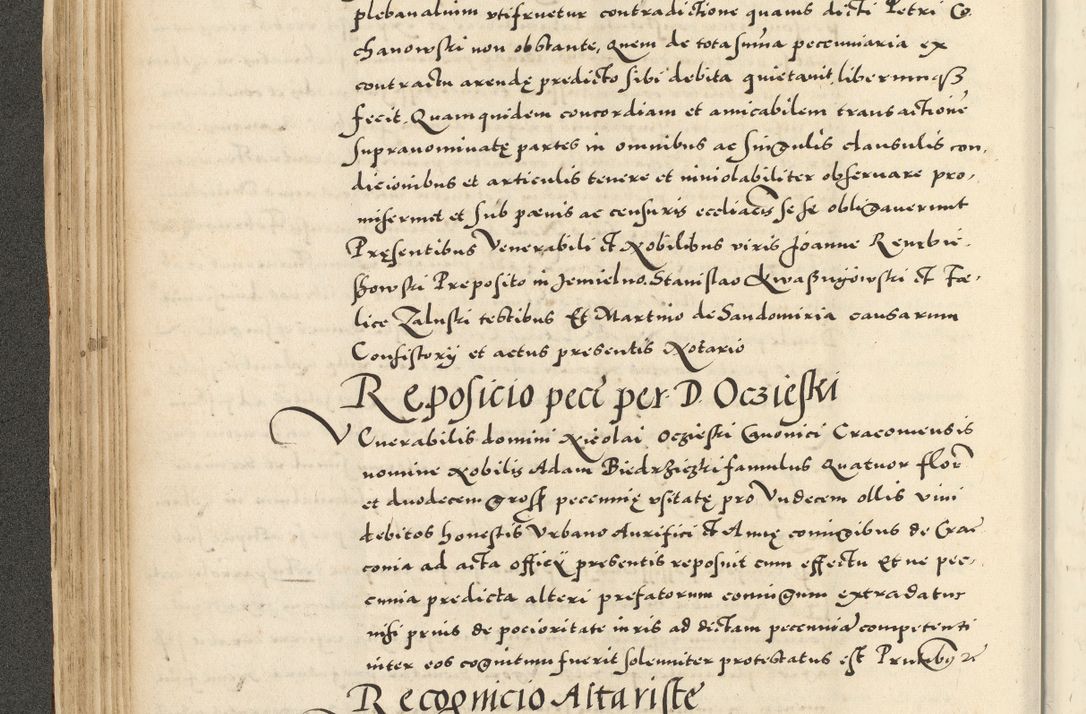 plebanalium utifruetur contradictione quavis dicti Petri Co
chanowski non obstante, Quem de tota suma pecuniaria ex
contractu arendę predicto sibi debita quietavit liberumq3
fecit. Quamquidem concordiam et amicabilem transactionē
supranominatę partes in omnibus ac singulis clausulis con,
dicionibus et articulis tenere et inviolabiliter observare pro,
miserunt et sub pœnis ac censuris eccliacis se se obligaverunt
Pręsentibus Venerabili et Nobilibus viris Joanne Rembie,
szowski Preposito in Jemielno. Stanislao Kwaszngowski et Fœ,
lice Zaluski testibus Et Martino de Sandomiria causarum
Consistorij et actus presentis Notario
Reposicio peci per D. Oczieski
Venerabilis domini Nicolai Oczieski Canonici Cracoviensis
nomine Nobilis Adam Biedrziczki famulus Quatuor flor
et duodecem gross pecunię usitatę pro Undecem ollis vini
debitos honestis Urbano Aurifici et Annę coniugibus de Cra
covia ad acta officij presentis reposuit cum effectu Et ne pec,
cunia predicta alteri prefatorum coniugum extradatur
nisi prius de pocioritate iuris ad dictam pecuniā competenti
inter eos cognitum fuerit solenniter protestatus est Pruntibus
Recognicio Altaristę